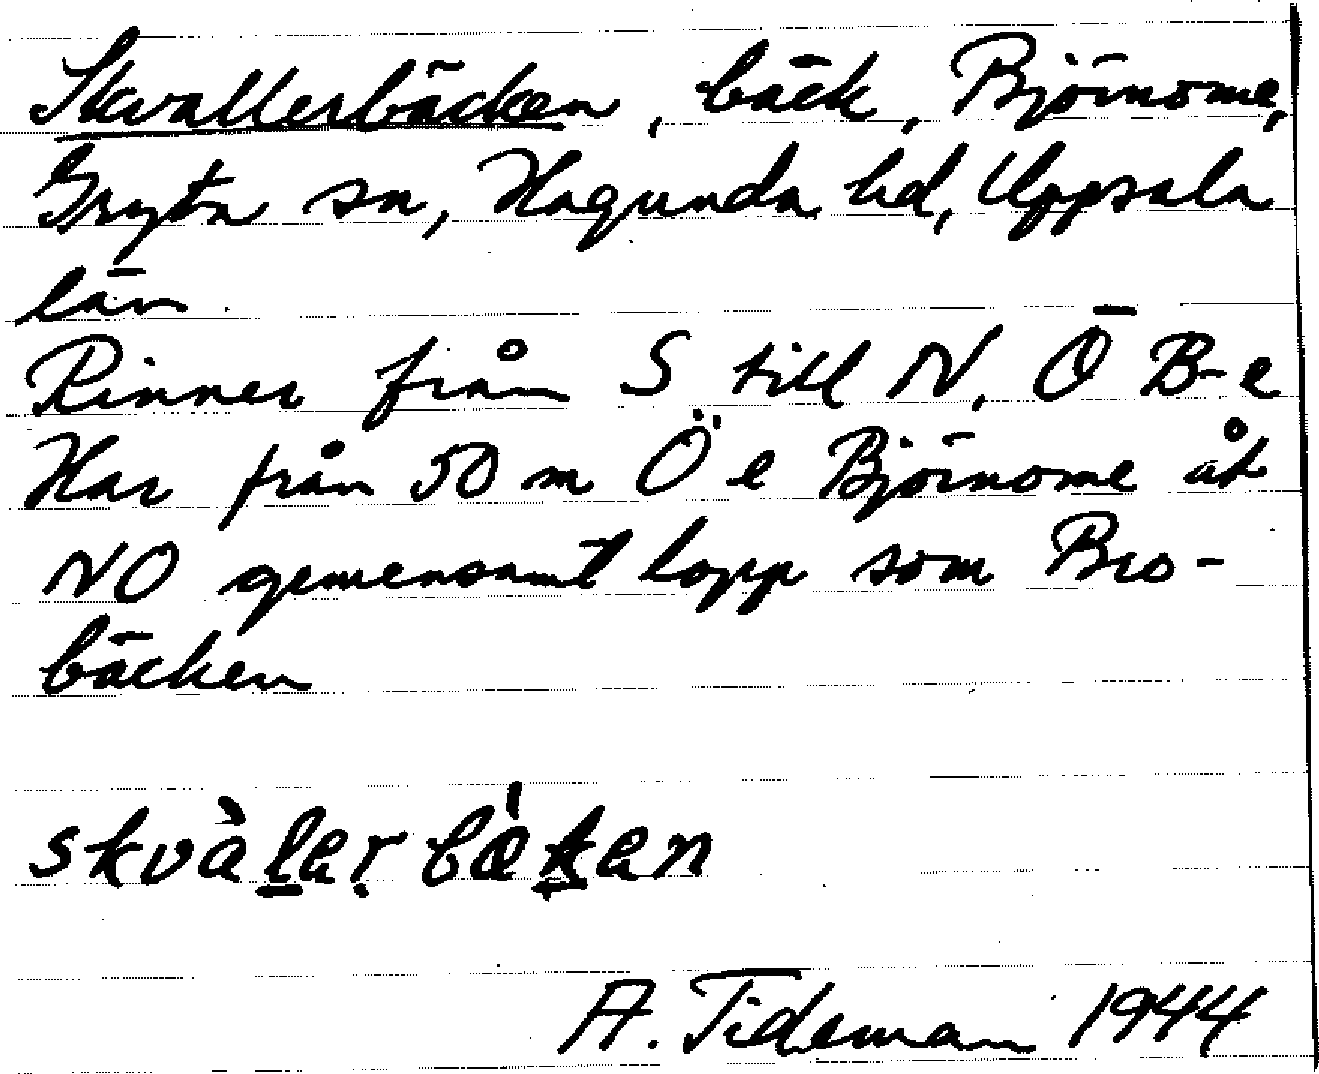 Skvallerbäcken, bäck, Björnome,
Gryta sn, Hagunda hd, Uppsala
län.
Rinner från S till N, Ö B-e
Har från 50 m Ö e Björnome åt
NO gemensamt lopp som Bro-
bäcken
skvàḻeṛbä̀ḵen
A. Tideman 1944